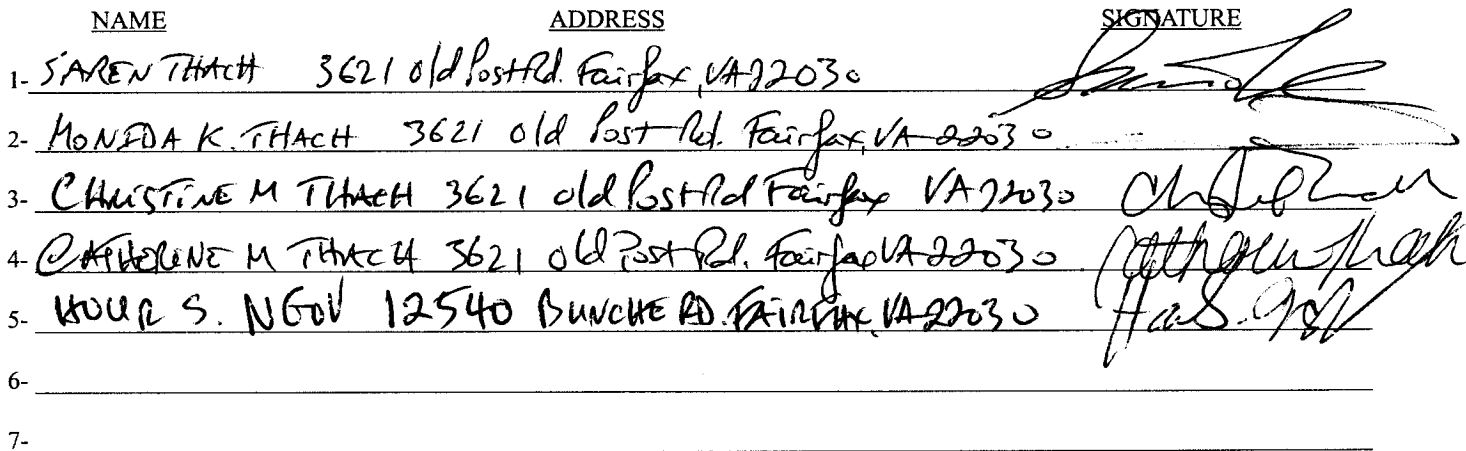 NAME ADDRESS SIGNATURE
1- SAREN THACH 3621 Old Post Rd. Fairfax, VA 22030
2- MONIDA K. THACH 3621 Old Post Rd. Fairfax, VA 22030
3- CHRISTINE M THACH 3621 Old Post Rd Fairfax VA 22030
4- CATHERINE M THACH 3621 Old Post Rd. Fairfax VA 22030
5- HOUR S. NGOV 12540 BUNCHE RD. FAIRFAX, VA 22030
6-
7-